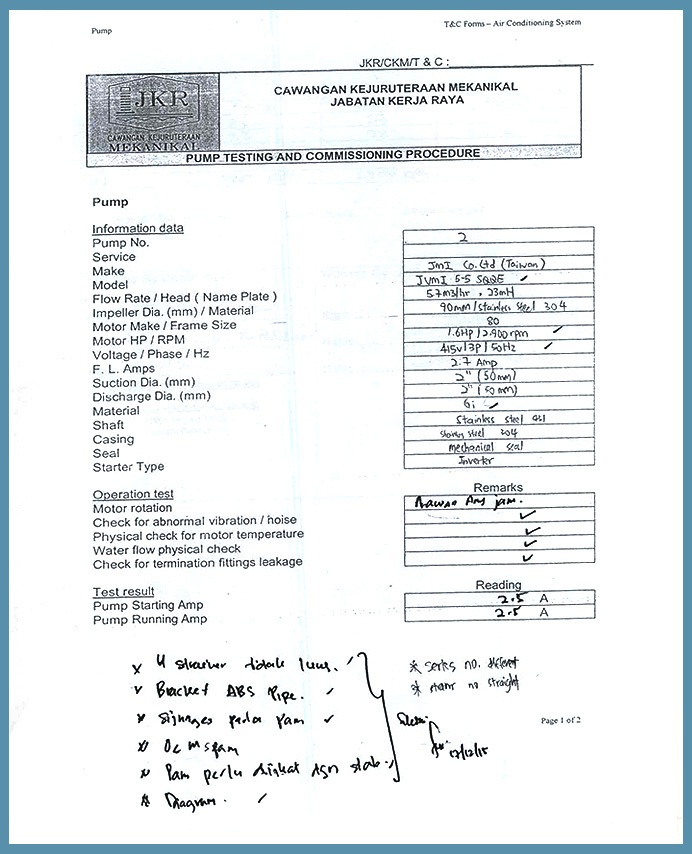 Pump
T&C Forms – Air Conditioning System
JKR/CKM/T & C :
JKR
CAWANGAN KEJURUTERAAN
MEKANIKAL
CAWANGAN KEJURUTERAAN MEKANIKAL
JABATAN KERJA RAYA
PUMP TESTING AND COMMISSIONING PROCEDURE
Pump
Information data
Pump No. 2
Service
Make JmI Co. Ltd (Taiwan)
Model JVMI 5-5 SQQE ✓
Flow Rate / Head ( Name Plate ) 5.7m3/hr , 23mH
Impeller Dia. (mm) / Material 90mm/stainless steel 304
Motor Make / Frame Size 80
Motor HP / RPM 1.6Hp / 2,900 rpm ✓
Voltage / Phase / Hz 415v/3P/50Hz ✓
F. L. Amps 2.7 Amp
Suction Dia. (mm) 2" (50mm)
Discharge Dia. (mm) 2" (50mm)
Material Gi ✓
Shaft Stainless steel
Casing steel 304
Seal mechanical seal
Starter Type Inverter
Operation test Remarks
Motor rotation jam.
Check for abnormal vibration / noise ✓
Physical check for motor temperature ✓
Water flow physical check ✓
Check for termination fittings leakage ✓
Test result Reading
Pump Starting Amp 2.5 A
Pump Running Amp 2.5 A
4 strainer tidak
Bracket ABS Pipe.
Signages pada Pam ✓
Pam perlu diikat dgn
Diagram.
* series no. different
* no straight
17/12/15
Page 1 of 2